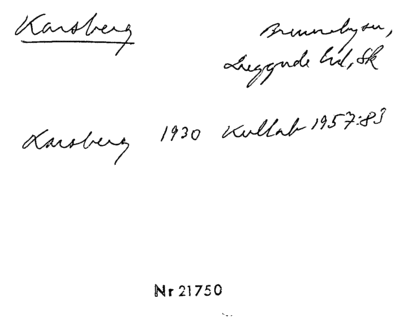 Karsberg
Brunnbysn,
Luggude hd, Sk
Karsberg 1930 Kullab 1957:83
Nr 21750